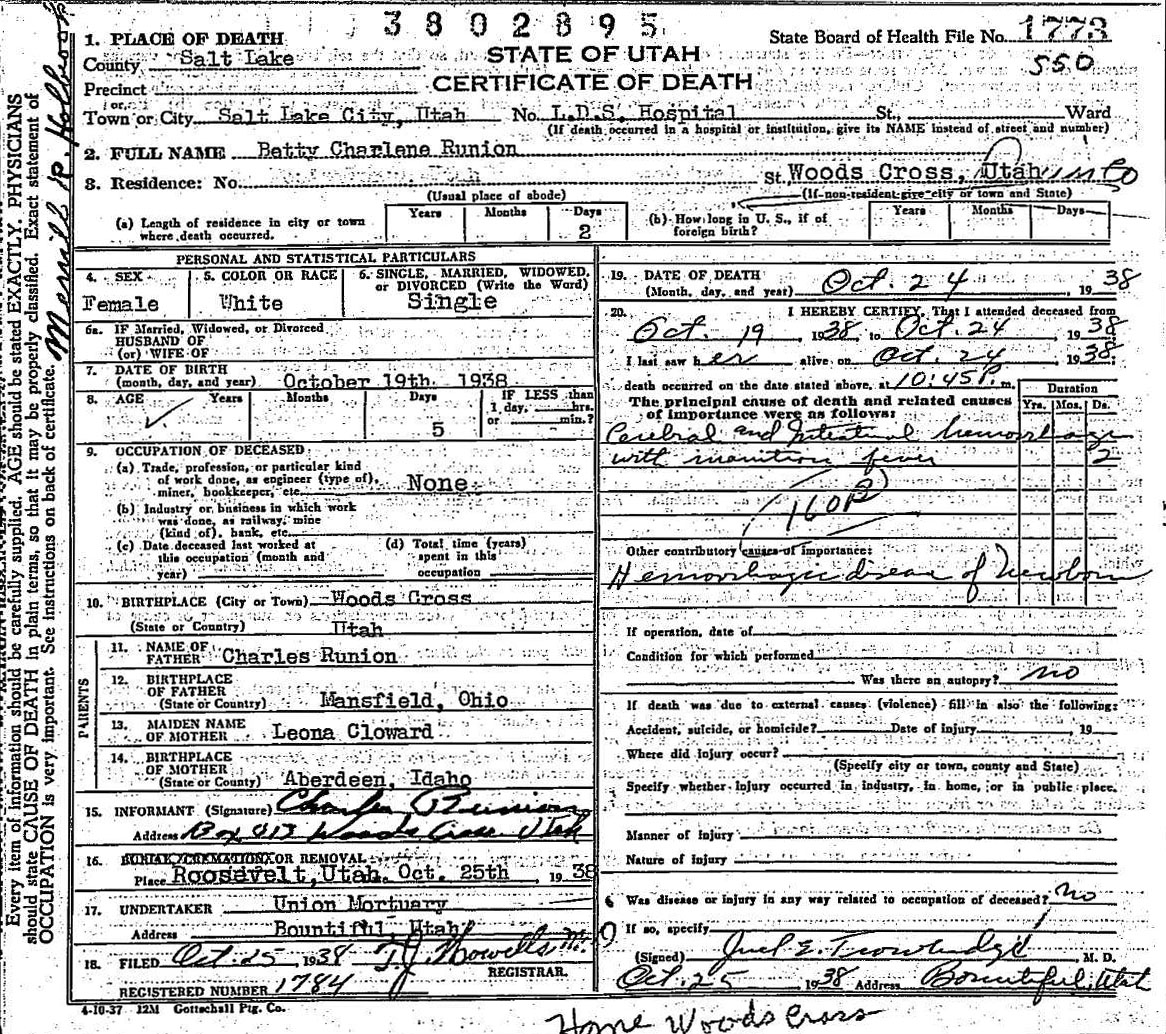 3802895
1. PLACE OF DEATH
State Board of Health File No. 1773
County Salt Lake
STATE OF UTAH
550
Precinct
CERTIFICATE OF DEATH
or
Town or City Salt Lake City, Utah No. L.D.S. Hospital St., Ward
(If death occurred in a hospital or institution, give its NAME instead of street and number)
2. FULL NAME Betty Charlene Runion
3. Residence: No. St. Woods Cross, Utah
(Usual place of abode) (If non-resident give city or town and State)
(a) Length of residence in city or town where death occurred. Years Months Days 2
(b) How long in U. S., if of foreign birth? Years Months Days
PERSONAL AND STATISTICAL PARTICULARS
4. SEX Female
5. COLOR OR RACE White
6. SINGLE, MARRIED, WIDOWED, or DIVORCED (Write the Word) Single
6a. IF Married, Widowed, or Divorced
HUSBAND OF
(or) WIFE OF
7. DATE OF BIRTH
(month, day, and year) October 19th. 1938
8. AGE Years Months Days 5
IF LESS than 1 day, hrs. or min.?
9. OCCUPATION OF DECEASED:
(a) Trade, profession, or particular kind
of work done, as engineer (type of),
miner, bookkeeper, etc. None
(b) Industry or business in which work
was done, as railway, mine
(kind of), bank, etc.
(c) Date deceased last worked at
this occupation (month and
year)
(d) Total time (years)
spent in this
occupation
10. BIRTHPLACE (City or Town) Woods Cross
(State or Country) Utah
PARENTS
11. NAME OF
FATHER Charles Runion
12. BIRTHPLACE
OF FATHER
(State or Country) Mansfield, Ohio
13. MAIDEN NAME
OF MOTHER Leona Cloward
14. BIRTHPLACE
OF MOTHER
(State or County) Aberdeen, Idaho
15. INFORMANT (Signature) Charles Runion
Address Box 213 Woods Cross Utah
16. BURIAL, CREMATION, OR REMOVAL
Place Roosevelt, Utah. Oct. 25th 1938
17. UNDERTAKER Union Mortuary
Address Bountiful, Utah
18. FILED Oct. 25 1938 T.J. Howells M.
REGISTRAR.
REGISTERED NUMBER 1784
4-10-37 12M Gottschall Ptg. Co.
19. DATE OF DEATH
(Month, day, and year) Oct. 24 1938
20. I HEREBY CERTIFY, That I attended deceased from
Oct. 19 1938 to Oct. 24 1938
I last saw her alive on Oct. 24 1938;
death occurred on the date stated above, at 10:45 P. m.
The principal cause of death and related causes
of importance were as follows:
Duration
Yrs. Mos. Ds.
Cerebral and Intestinal hemorrhage
with inanition fever 2
160B
Other contributory causes of importance:
Hemorrhagic disease of Newborn
If operation, date of
Condition for which performed
Was there an autopsy? no
If death was due to external causes (violence) fill in also the following:
Accident, suicide, or homicide? Date of injury , 19
Where did injury occur?
(Specify city or town, county and State)
Specify whether injury occurred in industry, in home, or in public place.
Manner of Injury
Nature of injury
Was disease or injury in any way related to occupation of deceased? no
If so, specify
(Signed) E. Trowbridge, M. D.
Oct. 25 1938 Address Bountiful, Utah
Home Woods Cross
Every item of information should be carefully supplied. AGE should be stated EXACTLY. PHYSICIANS
should state CAUSE OF DEATH in plain terms, so that it may be properly classified. Exact statement of
OCCUPATION is very important. See instructions on back of certificate.
Merrill R Holbrook